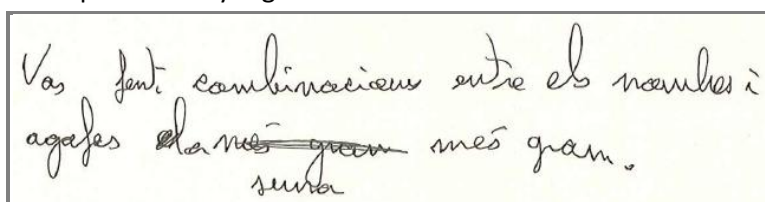 Vas fent combinacions entre els nombres i
agafes la més gran més gran.
suma